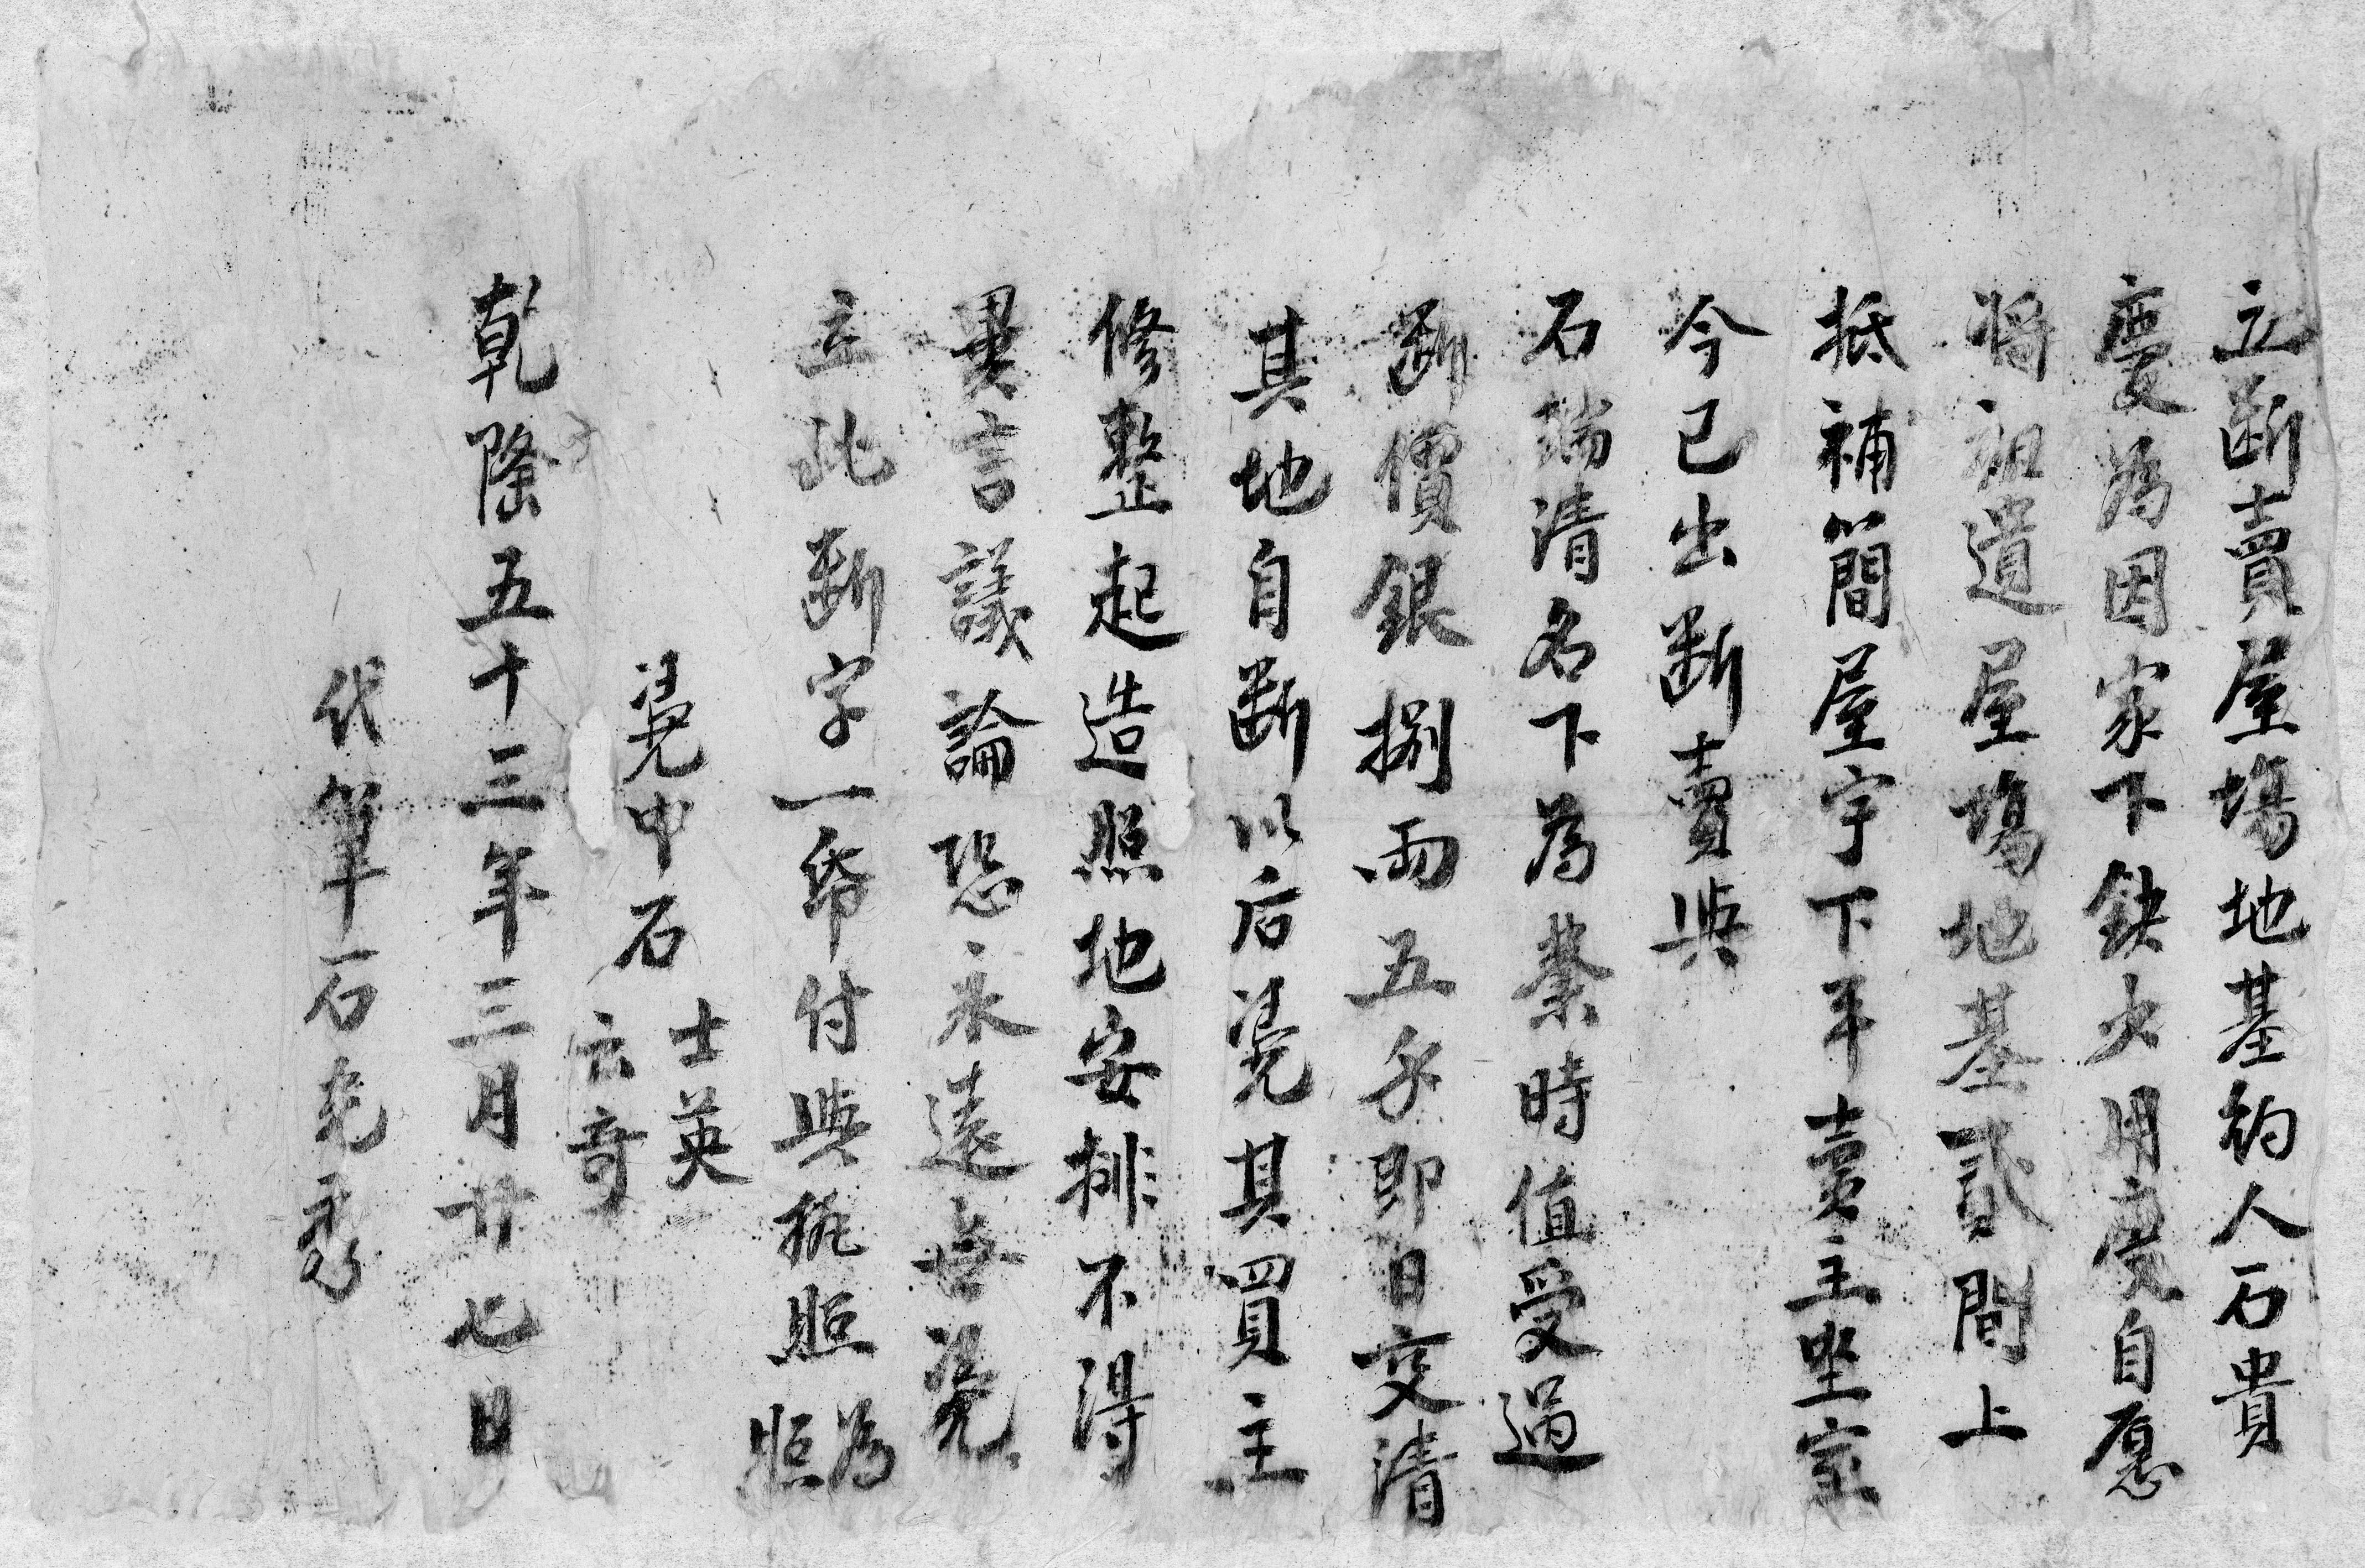 立断賣屋塲地基約人石貴
慶為因家下缺少用度自愿
将祖遺屋塲地基貳間上
抵補簡屋宇下平賣主坐室
今已出断賣與
石瑞清名下為業時值受過
断價銀捌両五錢即日交清
其地自断以后凴其買主
修整起造照地安排不得
異言議論恐永遠無凴
立此断字一帋付與執照為照
凴中石士英
云奇
乾隆五十三年三月廿七日
代筆石光秀